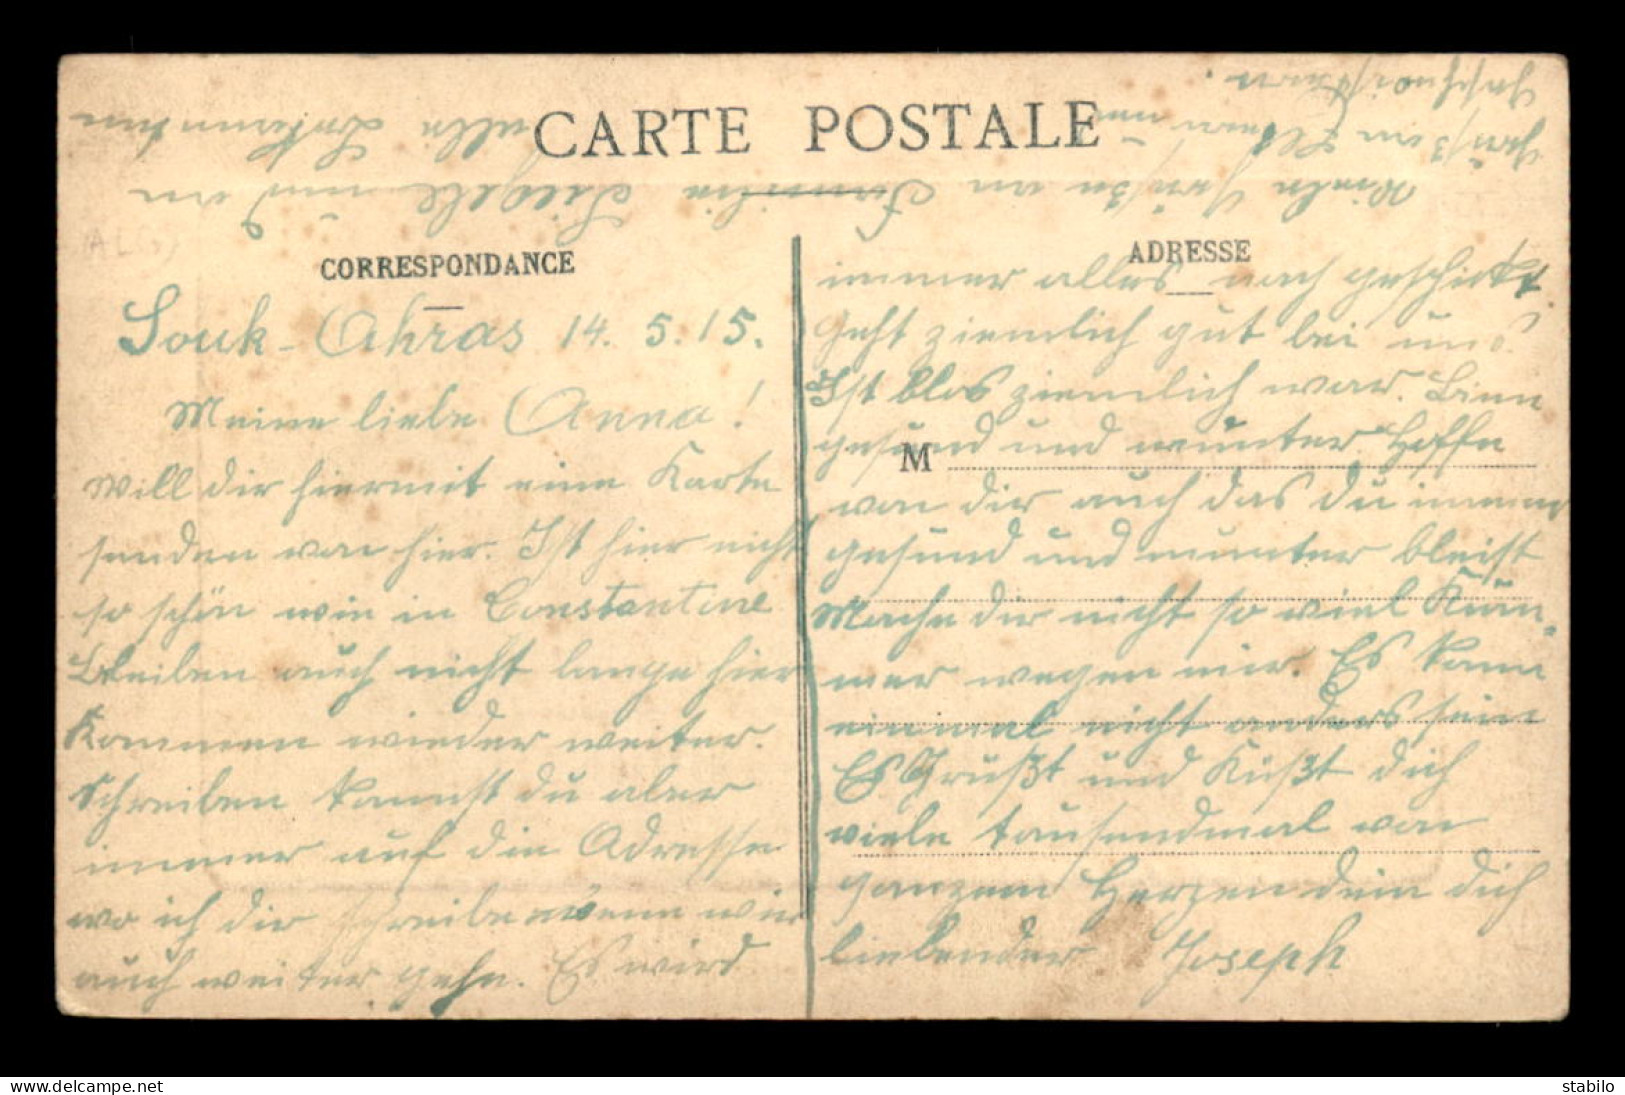 CARTE POSTALE
CORRESPONDANCE
Souk-Ahras 14. 5. 15.
Meine liebe Anna!
Will dir hiermit eine Karte
senden von hier. Ist hier nicht
so schön wie in Constantine
Bleiben auch nicht lange hier
Kommen wieder weiter.
Schreiben kannst du aber
immer auf die Adresse
wo ich dir schreibe wenn wir
auch weiter gehn. Es wird
ADRESSE
M
immer alles nach geschickt.
Geht ziemlich gut bei uns.
Ist blos ziemlich war. Binn
gesund und munter Hoffe
von dir auch das du immer
gesund und munter bleist
Mache dir nicht so viel Küm-
mer wegen mir. Es kann
einmal nicht anders sein
Es Grüßt und Küßt dich
viele tausendmal von
ganzem Herzen dein dich
liebender Joseph
Viele Grüße an Familie und an
alle Bekannten
Grüße an Eltern und
Geschwistern.
stabilo
www.delcampe.net